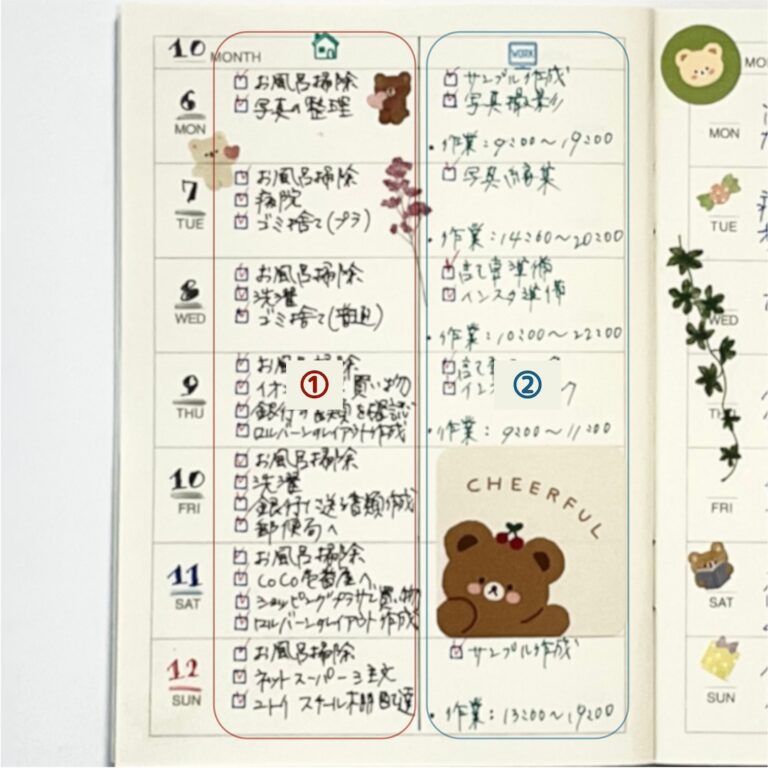 10 MONTH
WORK
6
MON
お風呂掃除
写真の整理
サンプル作成
写真撮影
・作業:9:00〜19:00
7
TUE
お風呂掃除
病院
ゴミ捨て(プラ)
写真編集
・作業:14:00〜20:00
8
WED
お風呂掃除
洗濯
ゴミ捨て
インスタ準備
・作業:10:00〜22:00
9
THU
お風呂掃除
イオ 買い物
①
銀行の を確認
ロルバーンのレイアウト作成
②
イン ク
・作業:9:00〜11:00
10
FRI
お風呂掃除
洗濯
銀行に送る書類作成
郵便局へ
CHEERFUL
11
SAT
お風呂掃除
CoCo壱番屋へ
ショッピングプラザで買い物
ロルバーンのレイアウト作成
12
SUN
お風呂掃除
ネットスーパー注文
ニトリ スチール棚配達
サンプル作成
・作業:13:00〜19:00
MO
MON
TUE
WED
THU
FRI
SAT
SUN